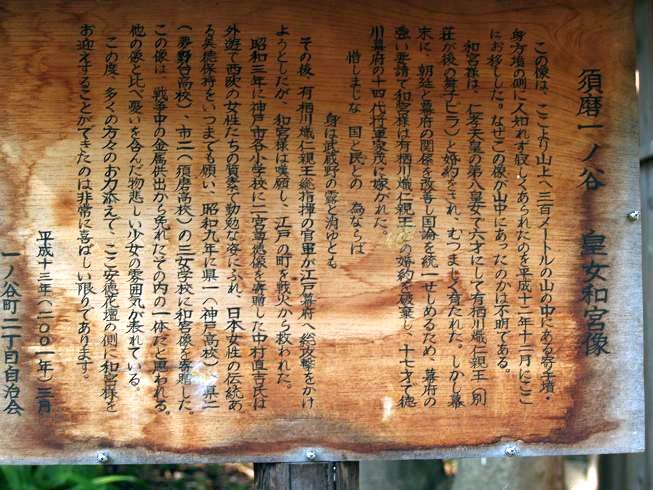 須磨一ノ谷　皇女和宮像
この像は、ここより山上へ三百メートルの山の中にある寄手墳・
身方墳の側に人知れず寂しくあられたのを平成十二年十二月にここ
にお移しした。なぜこの像が山中にあったのかは不明である。
和宮様は、仁孝天皇の第八皇女で六才にして有栖川熾仁親王（別
荘が後の舞子ビラ）と婚約をされ、むつまじく育たれた。しかし幕
末に、朝廷と幕府の関係を改善し国論を統一せしめるため、幕府の
強い要請で和宮様は有栖川熾仁親王との婚約を破棄し、十六才で徳
川幕府の十四代将軍家茂に嫁がれた。
惜しまじな　国と民との　為ならば
身は武蔵野の露と消ゆとも
その後、有栖川熾仁親王総指揮の官軍が江戸幕府へ総攻撃をかけ
ようとしたが、和宮様は嘆願し、江戸の町を戦火から救われた。
昭和三年に神戸市各小学校に二宮尊徳像を寄贈した中村直吉氏は
外遊で西欧の女性たちの質素で勤勉な姿にふれ、日本女性の伝統あ
る美徳保持をいつまでも願い、昭和九年に県一（神戸高校）、県二
（夢野台高校）、市二（須磨高校）の三女学校に和宮像を寄贈した。
この像は、戦争中の金属供出から免れたその内の一体だと思われる。
他の像と比べ、憂いを含んだ物悲しい少女の雰囲気が表れている。
この度、多くの方々のお力添えで、ここ安徳花壇の側に和宮様を
お迎えすることができたのは非常に喜ばしい限りであります。
平成十三年（二〇〇一年）三月
一ノ谷町二丁目自治会